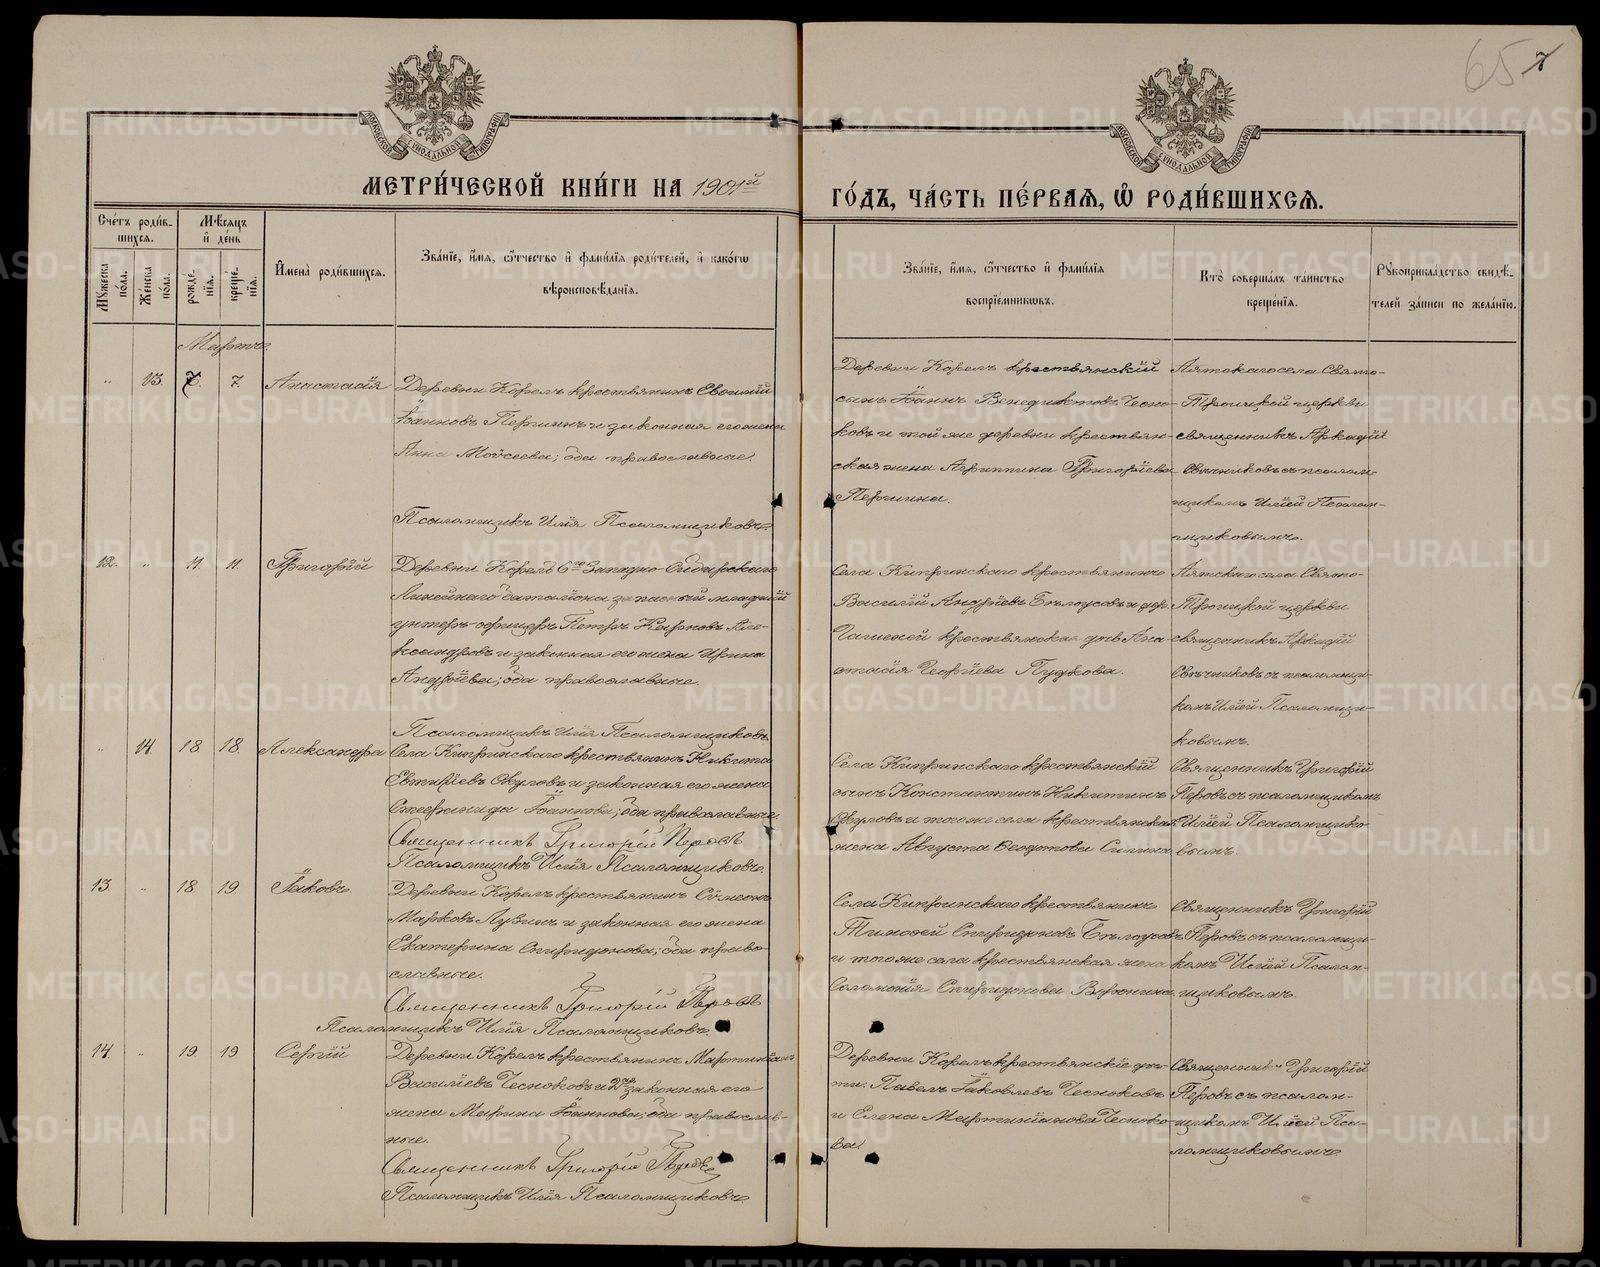 65 7
МОСКОВСКОЙ СѴНОДАЛЬНОЙ ТИПОГРАФІИ
МОСКОВСКОЙ СѴНОДАЛЬНОЙ ТИПОГРАФІИ
МЕТРИ́ЧЕСКОЙ КНИ́ГИ НА 1901й
ГО́ДЪ, ЧА́СТЬ ПЕ́РВАЯ, Ѽ РОДИ́ВШИХСЯ.
Сче́тъ роди́в-
шихся.
Мꙋ́жеска по́ла.
Же́нска по́ла.
Мѣ́сяцъ и́ де́нь
рожде́-нїя.
креще́-нїя.
И҆мена̀ роди́вшихся.
Зва́нїе, и҆́мя, ѻ҆́тчество и҆ фами́лїя роди́телей, и҆ како́гѡ
вѣроисповѣ́данїя.
Зва́нїе, и҆́мя, ѻ҆́тчество и҆ фами́лїя
воспрїе́мникѡвъ.
Кто̀ соверша́лъ та́инство
креще́нїя.
Рꙋкоприкла́дство свидѣ́-
телей за́писи по жела́нїю.
Мартъ.
„ 13. 6. 7. Анастасія
Деревни Корелъ крестьянинъ Евѳимій
Іоанновъ Першинъ и законная его жена
Анна Моѵсеева; оба православные.
Псаломщикъ Илія Псаломщиковъ.
Деревни Корелъ крестьянскій
сынъ Іоаннъ Венедиктовъ Чесно-
ковъ и той же деревни крестьян-
ская жена Агриппина Григоріева
Першина.
Пятокаго села Свято-
Троицкой церкви
священникъ Аркадій
Свѣчниковъ съ псалом-
щикомъ Иліей Псалом-
щиковымъ.
12. „ 11. 11. Григорій
Деревни Корелъ 6го Западно-Сибирскаго
Линейнаго баталіона запасный младшій
унтеръ-офицеръ Петръ Карповъ Але-
ксандровъ и законная его жена Ирина
Андріева; оба православные.
Псаломщикъ Илія Псаломщиковъ.
Села Кипринскаго крестьянинъ
Василій Андріевъ Бѣлоусовъ и дер.
крестьянская дѣв. Ана-
стасія Георгіева Пудкова.
Пятскаго села Свято-
Троицкой церкви
священникъ Аркадій
Свѣчниковъ съ псаломщи-
комъ Иліей Псаломщи-
ковымъ.
„ 14. 18 18. Александра
Села Кипринскаго крестьянинъ Никита
Евтиѳіевъ Окуловъ и законная его жена
Стефанида Іоаннова; оба православные.
Священникъ Григорій Перовъ
Псаломщикъ Илія Псаломщиковъ.
Села Кипринскаго крестьянскій
сынъ Константинъ Никитинъ
Окуловъ и того же села крестьянская
жена Августа Ѳеодотова Силина
Священникъ Григорій
Перовъ съ псаломщикомъ
Иліей Псаломщико-
вымъ.
13. „ 18 19 Іаковъ
Деревни Корелъ крестьянинъ Сѵмеонъ
Марковъ Лузинъ и законная его жена
Екатерина Спиридонова; оба право-
славные.
Священникъ Григорій Перовъ
Псаломщикъ Илія Псаломщиковъ.
Села Кипринскаго крестьянинъ
Тимоѳей Спиридоновъ Бѣлоусовъ
и того же села крестьянская жена
Соломонія Спиридонова Веронина
Священникъ Григорій
Перовъ съ псаломщи-
комъ Иліей Псалом-
щиковымъ.
14. „ 19 19 Сергій
Деревни Корелъ крестьянинъ Мартиніанъ
Василіевъ Чесноковъ и 2ая законная его
жена Марина Іоаннова; оба православ-
ные.
Священникъ Григорій Перовъ
Псаломщикъ Илія Псаломщиковъ.
Деревни Корелъ крестьянскіе дѣ-
ти: Павелъ Іаковлевъ Чесноковъ
и Елена Мартиніанова Чесноко-
ва.
Священникъ Григорій
Перовъ съ псалом-
щикомъ Иліей Пса-
ломщиковымъ.
METRIKI.GASO-URAL.RU